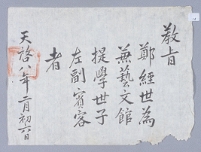 教旨
鄭經世為
兼藝文館
提學世子
左副賓客
者
天啓八年二月初六日